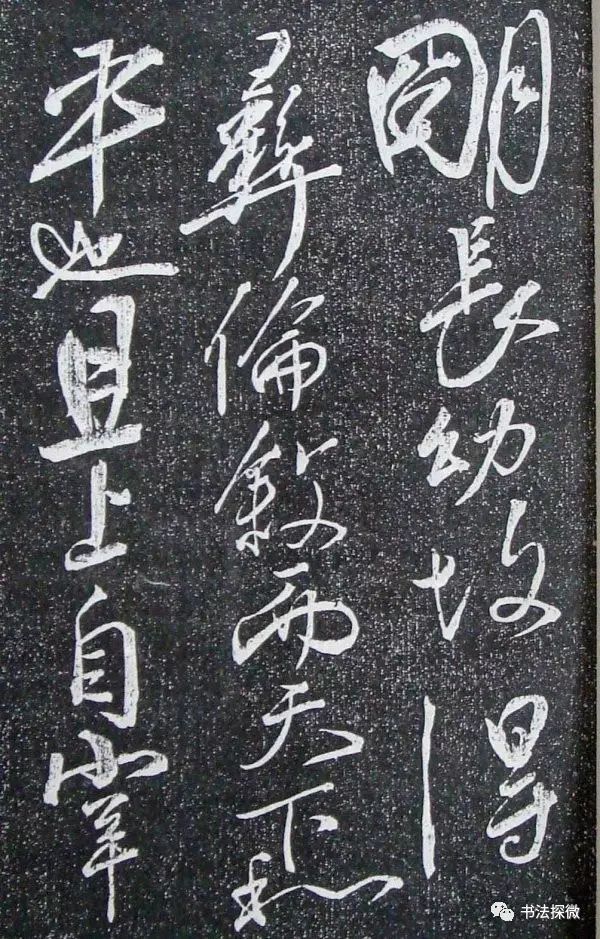 明長幼故得
彝倫敘而天下和
平也且上自宰
书法探微